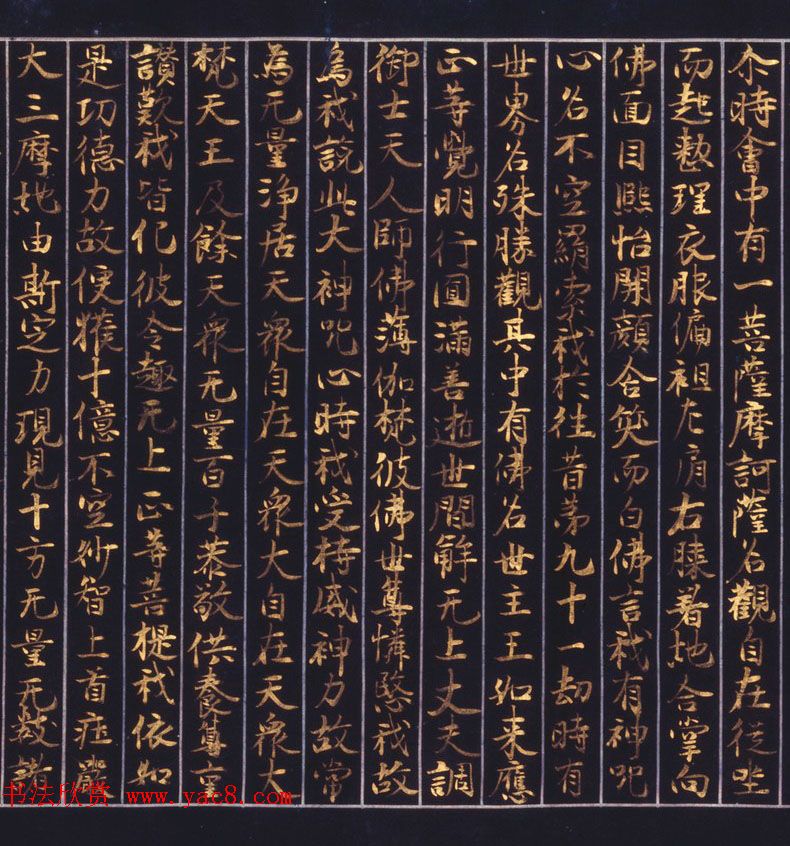 尒時會中有一菩薩摩訶薩名觀自在從坐
而起整理衣服偏袒左肩右膝著地合掌向
佛面目熙怡開顏含笑而白佛言我有神呪
心名不空羂索我於往昔第九十一劫時有
世界名殊勝觀其中有佛名世主王如来應
正等覺明行圓滿善逝世間解无上丈夫調
御士天人師佛薄伽梵彼佛世尊憐愍我故
為我說此大神呪心時我受持威神力故常
為无量淨居天衆自在天衆大自在天衆大
梵天王及餘天衆无量百千恭敬供養尊重
讃歎我皆化彼令趣无上正等菩提我依如
是功德力故便獲十億不空妙智上首莊嚴
大三摩地由斯定力現見十方无量无数諸
书法欣赏 www.yac8.com